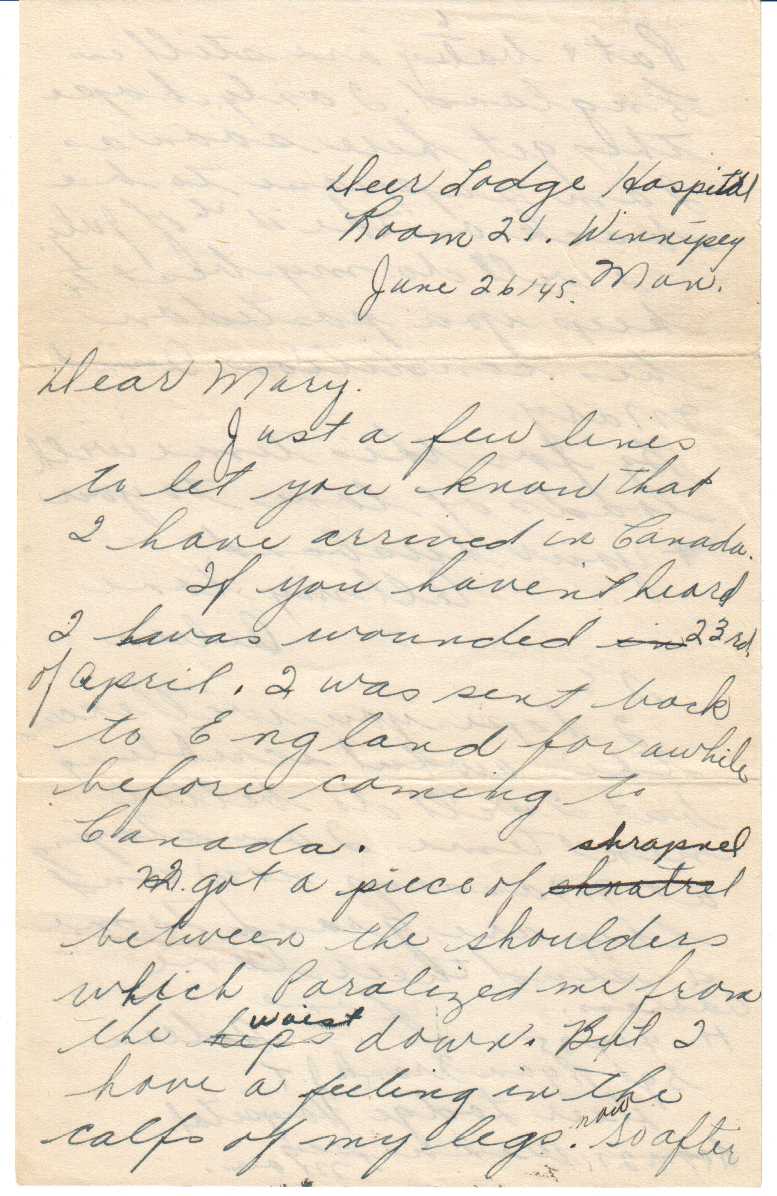 Deer Lodge Hospital
Room 21. Winnipeg
June 26/45. Man.
Dear Mary.
Just a few lines
to let you know that
I have arrived in Canada.
If you haven't heard
I was wounded in 23rd.
of April. I was sent back
to England for awhile
before coming to
Canada.
shrapnel
I got a piece of shnatrel
between the shoulders
which Paralized me from
waist
the hips down. But I
have a feeling in the
now
calfs of my legs. So after